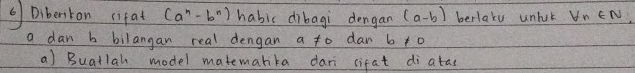 6) Diberikan sifat (aⁿ-bⁿ) habis dibagi dengan (a-b) berlaku untuk ∀n ∈ N.
a dan b bilangan real dengan a ≠ 0 dan b ≠ 0
a) Buatlah model matematika dari sifat di atas